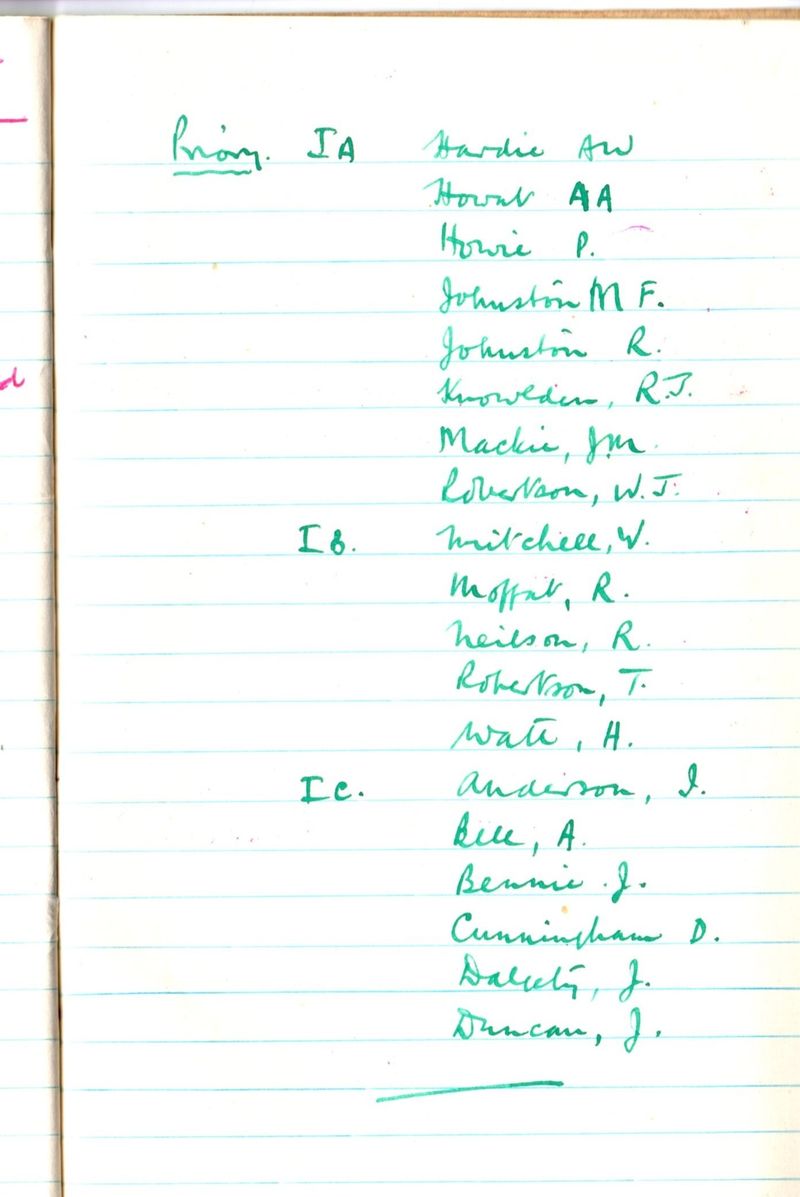 Priory. IA Hardie AW
Howat AA
Howie P.
Johnston M F.
Johnston R.
Knowlden, R.J.
Mackie, J.M.
Robertson, W.J.
IB. Mitchell, W.
Moffat, R.
Neilson, R.
Robertson, T.
Watt, H.
IC. Anderson, I.
Bell, A.
Bennie J.
Cunningham D.
Dalgety, J.
Duncan, J.